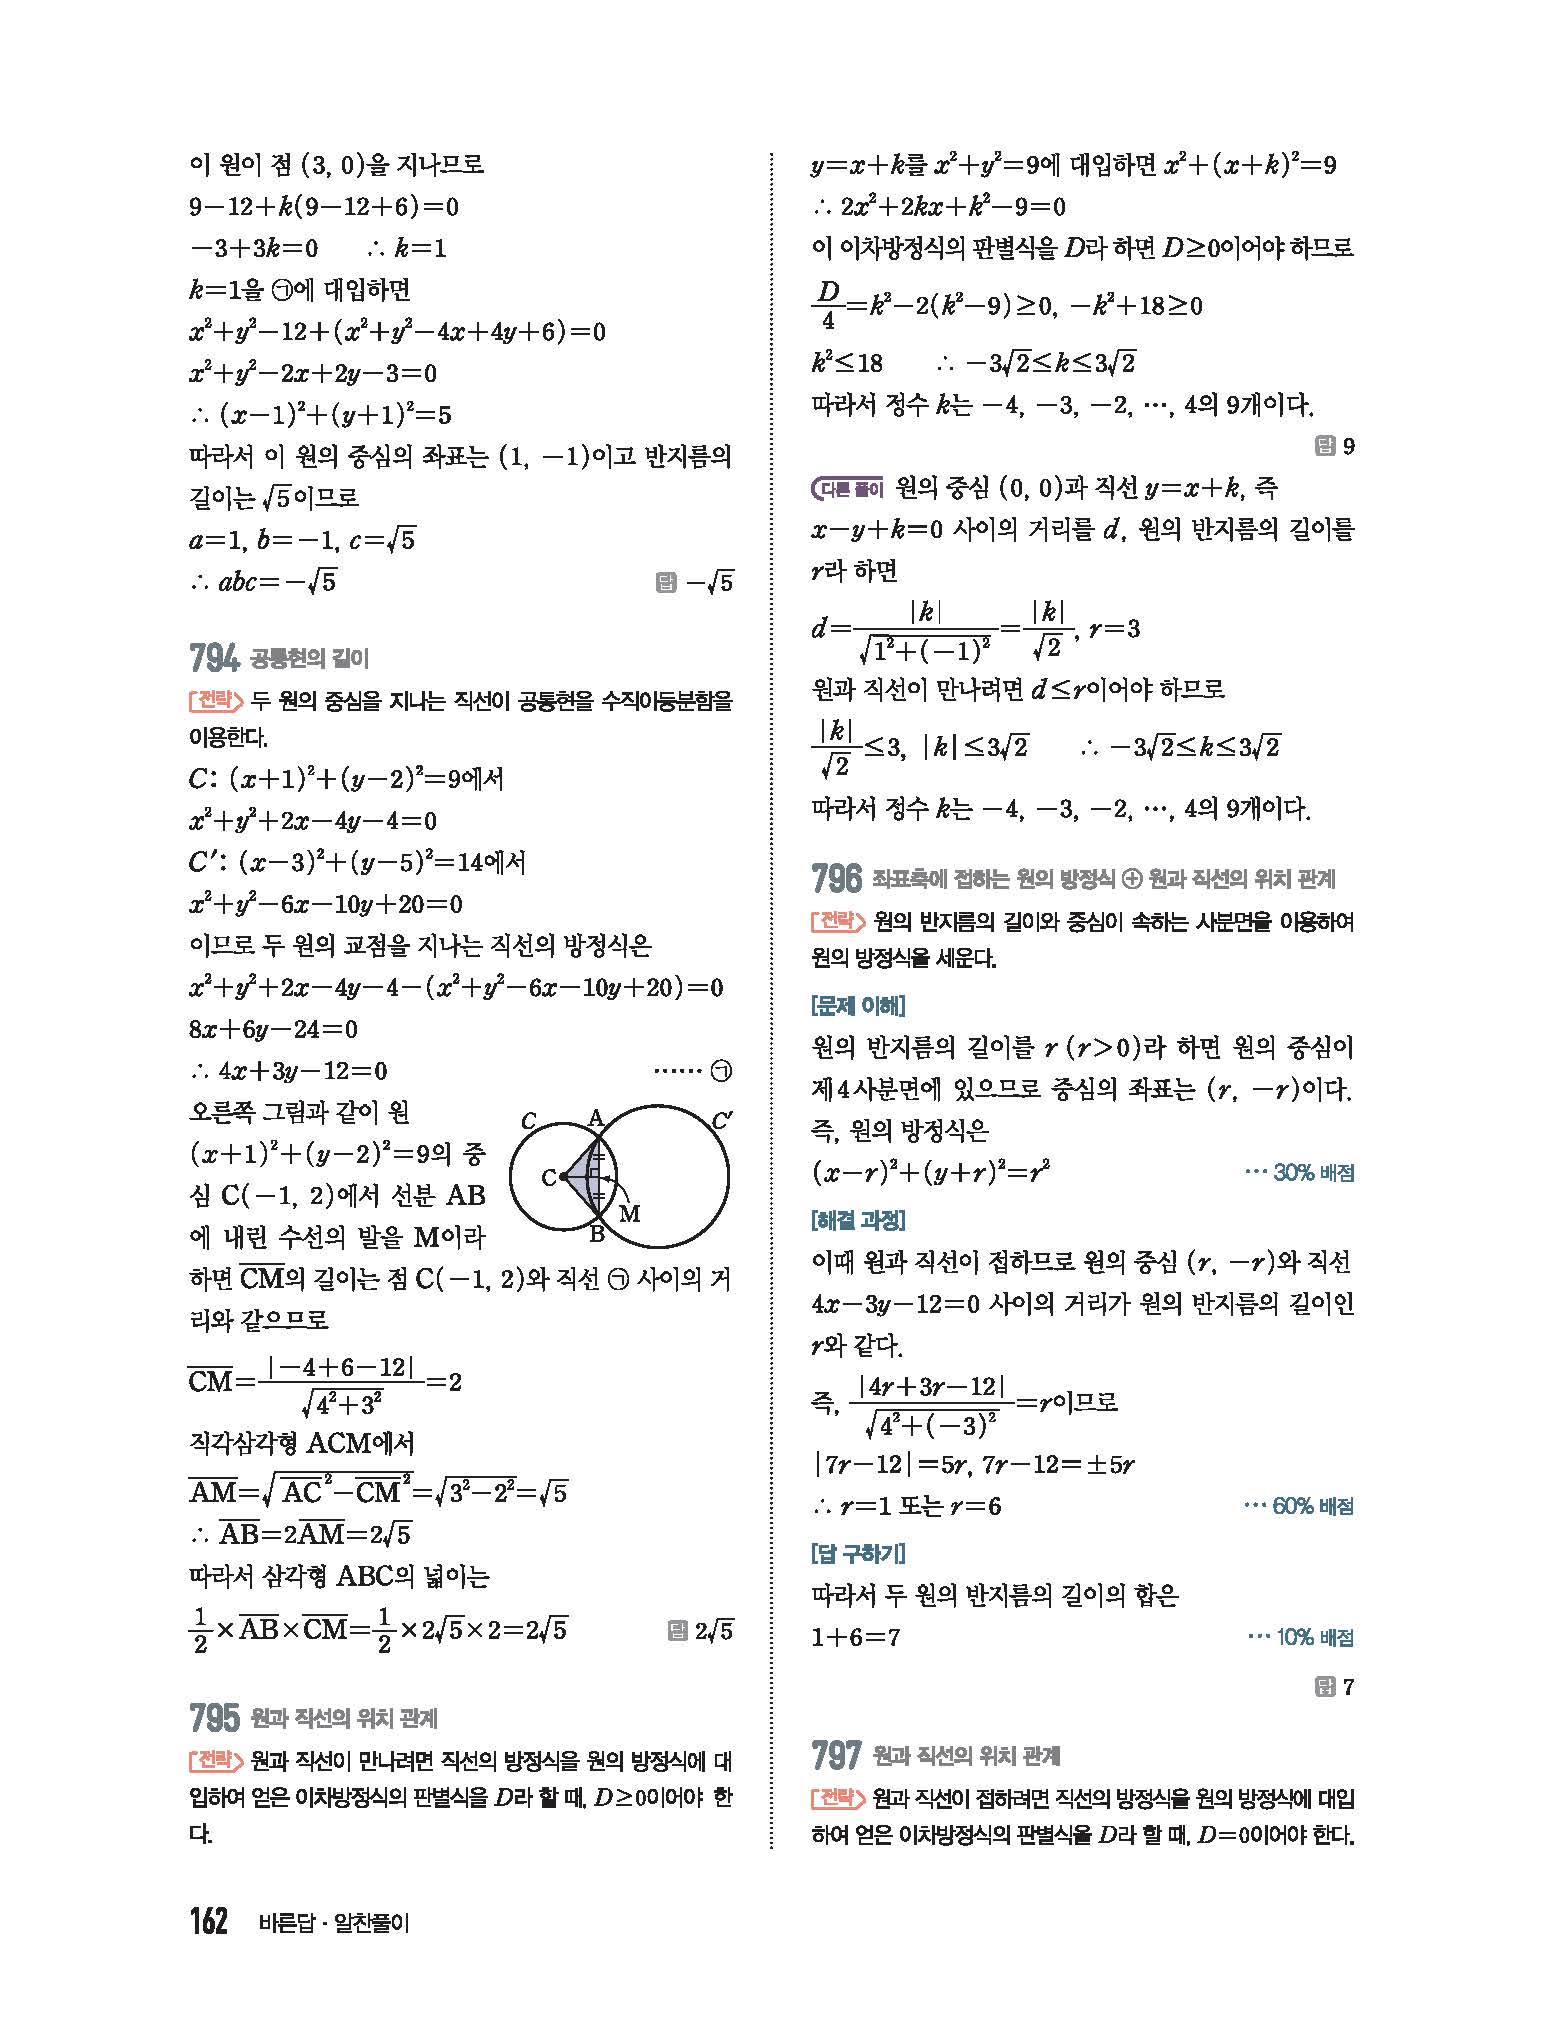 이 원이 점 (3, 0)을 지나므로
9−12+k(9−12+6)=0
−3+3k=0  ∴ k=1
k=1을 ㉠에 대입하면
x²+y²−12+(x²+y²−4x+4y+6)=0
x²+y²−2x+2y−3=0
∴ (x−1)²+(y+1)²=5
따라서 이 원의 중심의 좌표는 (1, −1)이고 반지름의
길이는 √5이므로
a=1, b=−1, c=√5
∴ abc=−√5  답 −√5
794 공통현의 길이
전략 두 원의 중심을 지나는 직선이 공통현을 수직이등분함을
이용한다.
C: (x+1)²+(y−2)²=9에서
x²+y²+2x−4y−4=0
C′: (x−3)²+(y−5)²=14에서
x²+y²−6x−10y+20=0
이므로 두 원의 교점을 지나는 직선의 방정식은
x²+y²+2x−4y−4−(x²+y²−6x−10y+20)=0
8x+6y−24=0
∴ 4x+3y−12=0  …… ㉠
오른쪽 그림과 같이 원
(x+1)²+(y−2)²=9의 중
심 C(−1, 2)에서 선분 AB
에 내린 수선의 발을 M이라
C A C′
C
M
B
하면 C̅M̅의 길이는 점 C(−1, 2)와 직선 ㉠ 사이의 거
리와 같으므로
C̅M̅=|−4+6−12|/√(4²+3²)=2
직각삼각형 ACM에서
A̅M̅=√(A̅C̅²−C̅M̅²)=√(3²−2²)=√5
∴ A̅B̅=2A̅M̅=2√5
따라서 삼각형 ABC의 넓이는
1/2×A̅B̅×C̅M̅=1/2×2√5×2=2√5  답 2√5
795 원과 직선의 위치 관계
전략 원과 직선이 만나려면 직선의 방정식을 원의 방정식에 대
입하여 얻은 이차방정식의 판별식을 D라 할 때, D≥0이어야 한
다.
y=x+k를 x²+y²=9에 대입하면 x²+(x+k)²=9
∴ 2x²+2kx+k²−9=0
이 이차방정식의 판별식을 D라 하면 D≥0이어야 하므로
D/4=k²−2(k²−9)≥0, −k²+18≥0
k²≤18  ∴ −3√2≤k≤3√2
따라서 정수 k는 −4, −3, −2, …, 4의 9개이다.
답 9
다른 풀이 원의 중심 (0, 0)과 직선 y=x+k, 즉
x−y+k=0 사이의 거리를 d, 원의 반지름의 길이를
r라 하면
d=|k|/√(1²+(−1)²)=|k|/√2, r=3
원과 직선이 만나려면 d≤r이어야 하므로
|k|/√2≤3, |k|≤3√2  ∴ −3√2≤k≤3√2
따라서 정수 k는 −4, −3, −2, …, 4의 9개이다.
796 좌표축에 접하는 원의 방정식 ⊕ 원과 직선의 위치 관계
전략 원의 반지름의 길이와 중심이 속하는 사분면을 이용하여
원의 방정식을 세운다.
[문제 이해]
원의 반지름의 길이를 r (r>0)라 하면 원의 중심이
제4사분면에 있으므로 중심의 좌표는 (r, −r)이다.
즉, 원의 방정식은
(x−r)²+(y+r)²=r²  … 30% 배점
[해결 과정]
이때 원과 직선이 접하므로 원의 중심 (r, −r)와 직선
4x−3y−12=0 사이의 거리가 원의 반지름의 길이인
r와 같다.
즉, |4r+3r−12|/√(4²+(−3)²)=r이므로
|7r−12|=5r, 7r−12=±5r
∴ r=1 또는 r=6  … 60% 배점
[답 구하기]
따라서 두 원의 반지름의 길이의 합은
1+6=7  … 10% 배점
답 7
797 원과 직선의 위치 관계
전략 원과 직선이 접하려면 직선의 방정식을 원의 방정식에 대입
하여 얻은 이차방정식의 판별식을 D라 할 때, D=0이어야 한다.
162 바른답 · 알찬풀이